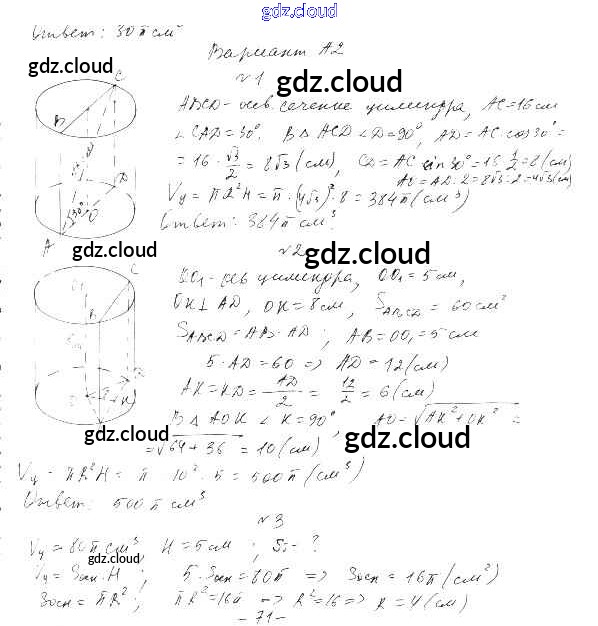 gdz.cloud
Ответ: 30π см³
Вариант А2
gdz.cloud
gdz.cloud
№1
gdz.cloud
ABCD - осев. сечение цилиндра, AC=16см
∠CAD=30°. В △ ACD ∠D=90°, AD=AC cos30°=
=16·√3/2=8√3(см), CD=AC sin30°=16·1/2=8(см)
AO=AD:2=8√3:2=4√3(см)
Vц=πR²H=π·(4√3)²·8=384π(см³)
Ответ: 384π см³
C
B
D
30°
O
A
gdz.cloud
№2
gdz.cloud
OO₁-ось цилиндра, OO₁=5см,
OK⊥AD, OK=8см, S_ABCD=60см²
S_ABCD=AB·AD; AB=OO₁=5см
5·AD=60 => AD=12(см)
AK=KD=AD/2=12/2=6(см)
В △ AOK ∠K=90°, AO=√AK²+OK²=
=√64+36=10(см)
C
O₁
B
K
gdz.cloud
gdz.cloud
Vц=πR²H=π·10²·5=500π(см³)
gdz.cloud
Ответ: 500π см³
№3
gdz.cloud
Vц=80πсм³, H=5см; S-?
gdz.cloud
Vц=Sосн·H; 5·Sосн=80π => Sосн=16π(см²)
Sосн=πR²; πR²=16π => R²=16=>R=4(см)
-71-